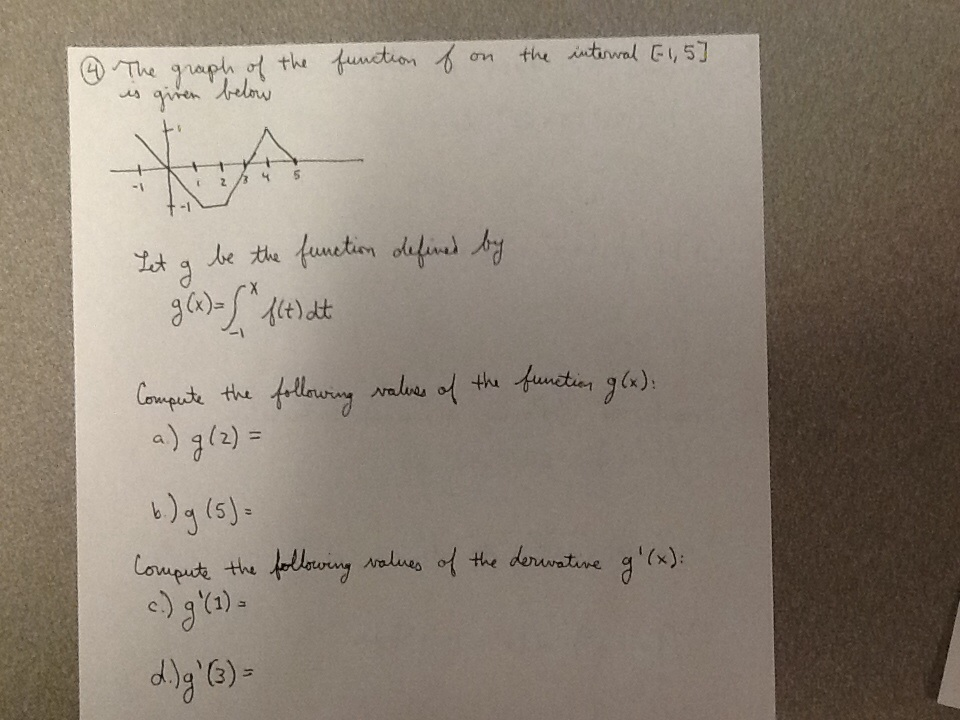 ④ The graph of the function f on the interval [-1, 5]
is given below
1
-1 1 2 3 4 5
-1
Let g be the function defined by
g(x)=∫_{-1}^{x} f(t)dt
Compute the following values of the function g(x):
a.) g(2) =
b.) g(5) =
Compute the following values of the derivative g'(x):
c.) g'(1) =
d.) g'(3) =